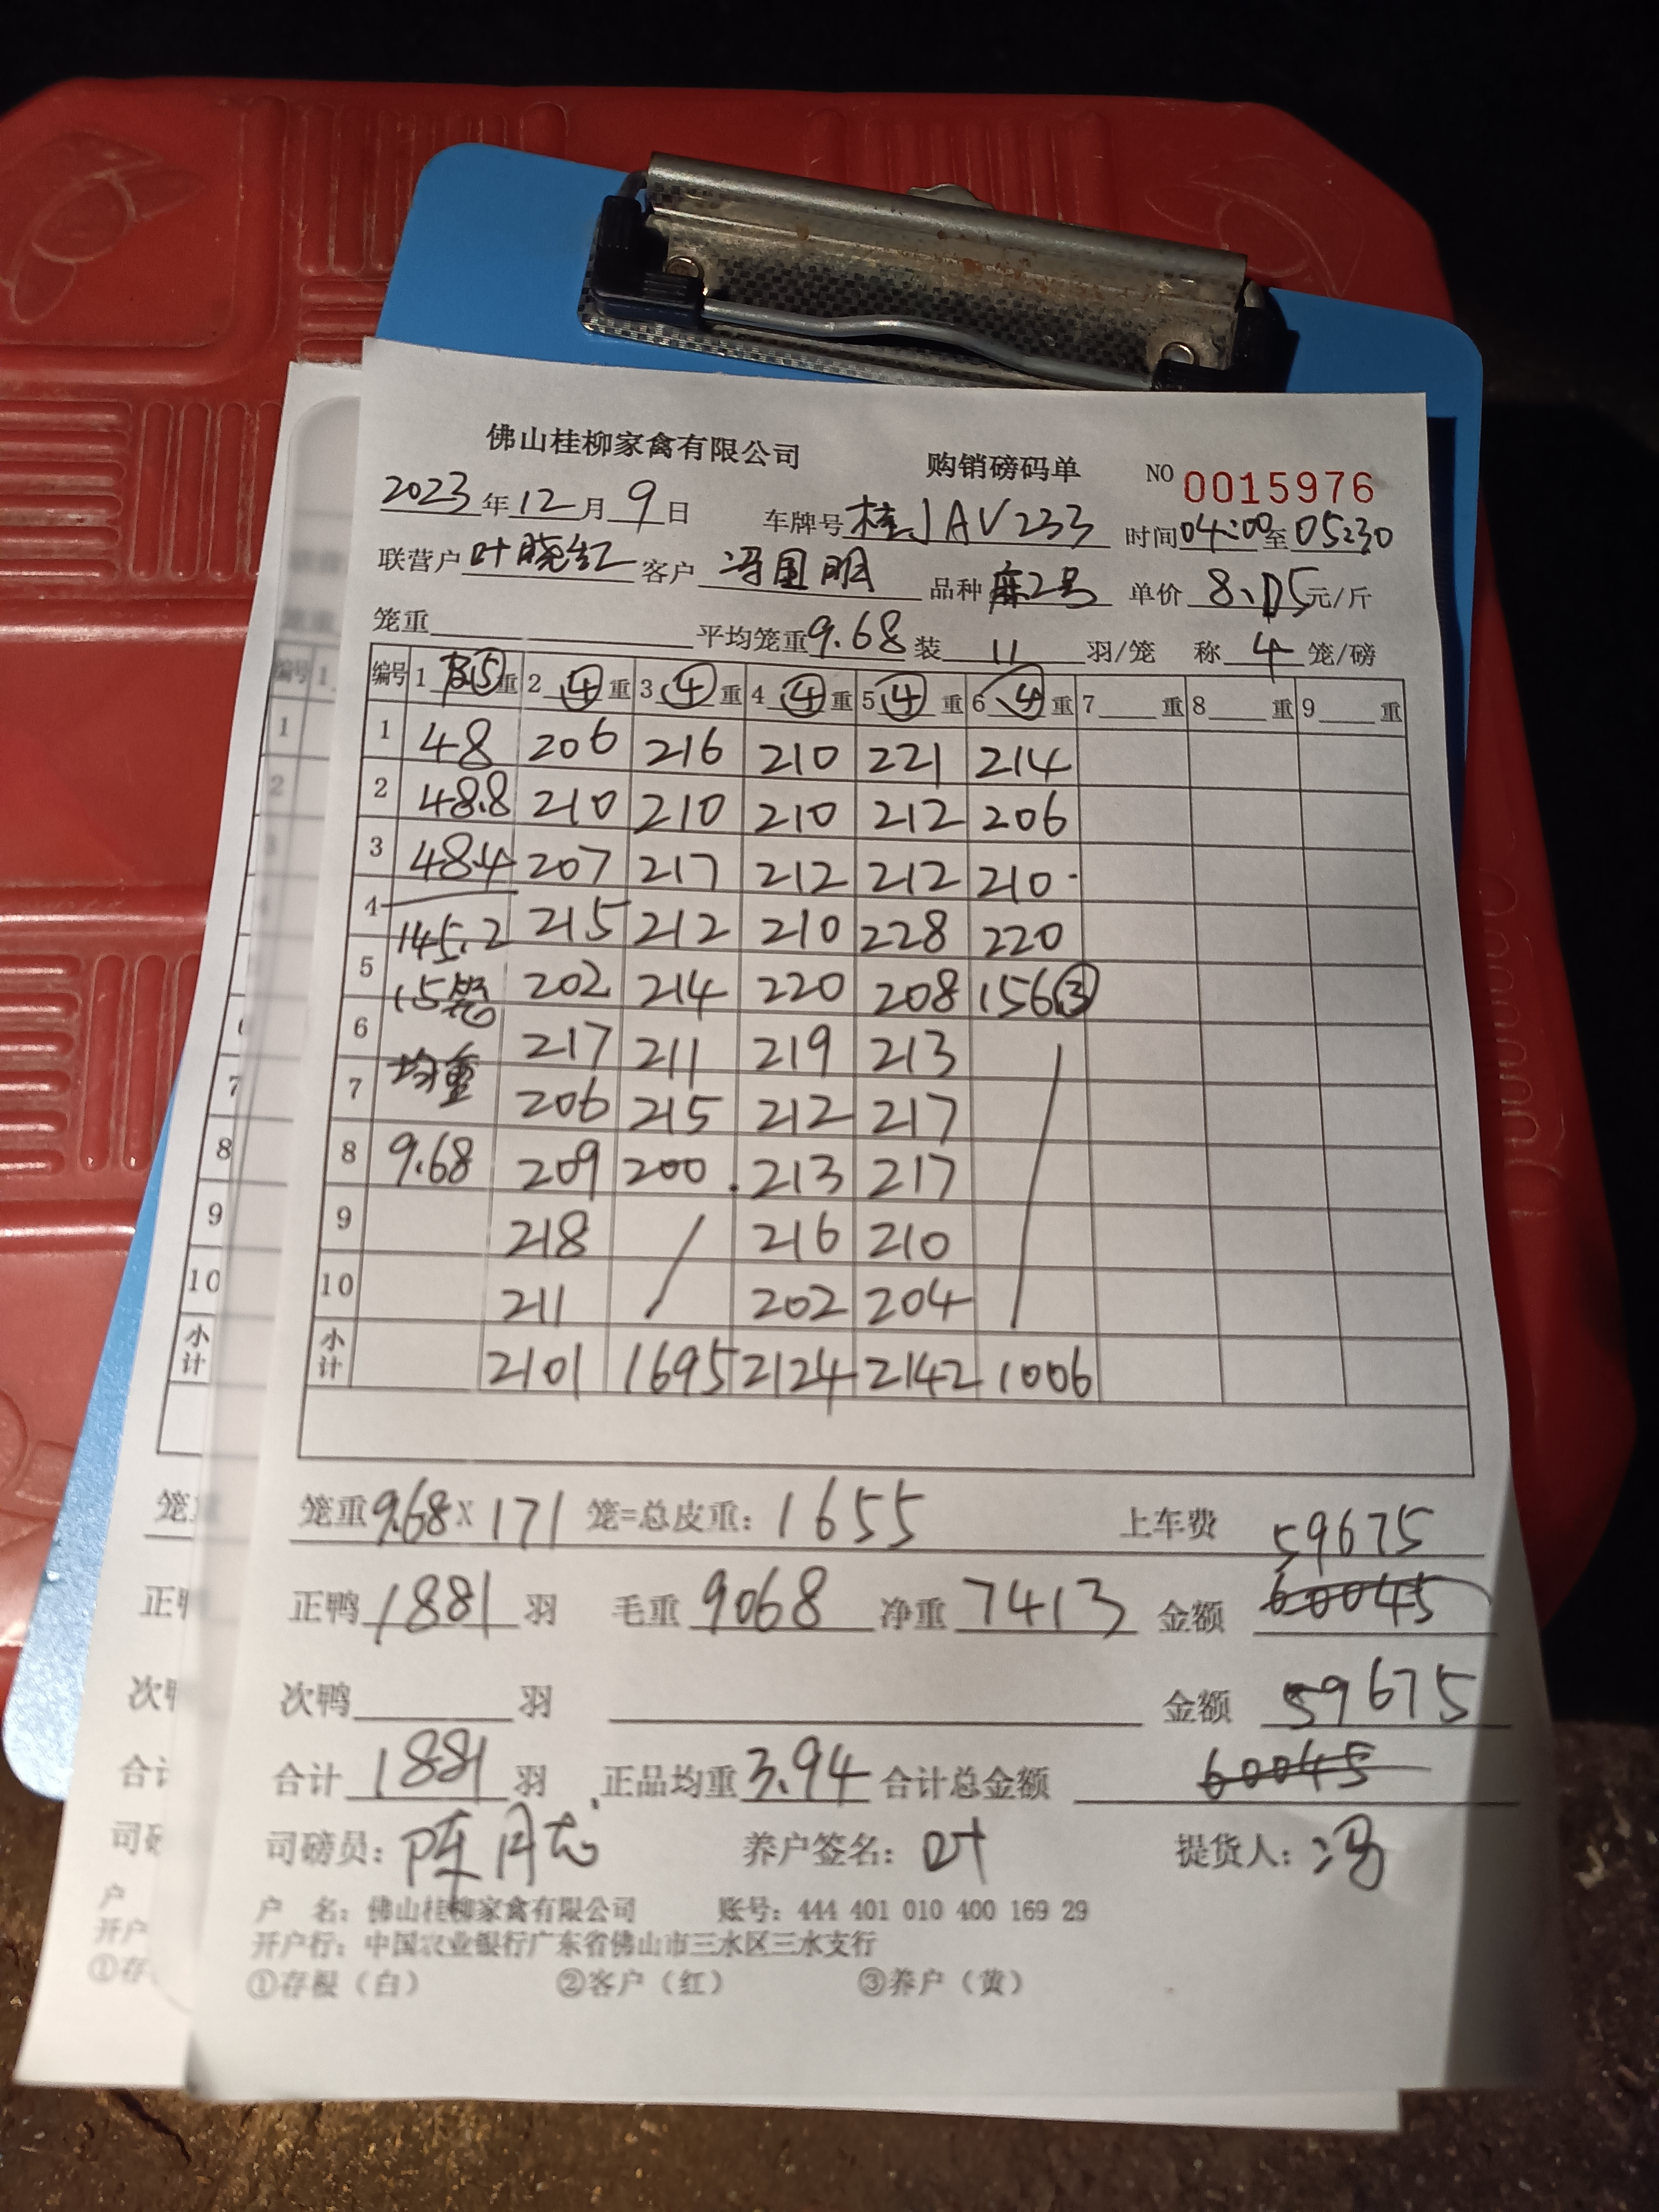 佛山桂柳家禽有限公司 购销磅码单 NO 0015976
2023年12月9日 车牌号桂JAV233 时间04:00至05:30
联营户叶晓红 客户冯国明 品种麻2号 单价8.05元/斤
笼重 平均笼重9.68装11羽/笼 称4笼/磅
编号 1 皮⑤重 2 ④重 3 ④重 4 ④重 5 ④重 6 ④重 7 重 8 重 9 重
1 48 206 216 210 221 214
2 48.8 210 210 210 212 206
3 48.4 207 217 212 212 210
4 145.2 215 212 210 228 220
5 15笼 202 214 220 208 156③
6 217 211 219 213
7 均重 206 215 212 217
8 9.68 209 200 213 217
9 218 / 216 210 /
10 211 202 204
小计 2101 1695 2124 2142 1006
笼重9.68X171笼=总皮重：1655 上车费 59675
正鸭1881羽 毛重9068 净重7413 金额 60045
次鸭 羽 金额 59675
合计1881羽 正品均重3.94 合计总金额 60045
司磅员：陈月志 养户签名：叶 提货人：冯
户 名：佛山桂柳家禽有限公司 账号：444 401 010 400 169 29
开户行：中国农业银行广东省佛山市三水区三水支行
①存根（白） ②客户（红） ③养户（黄）